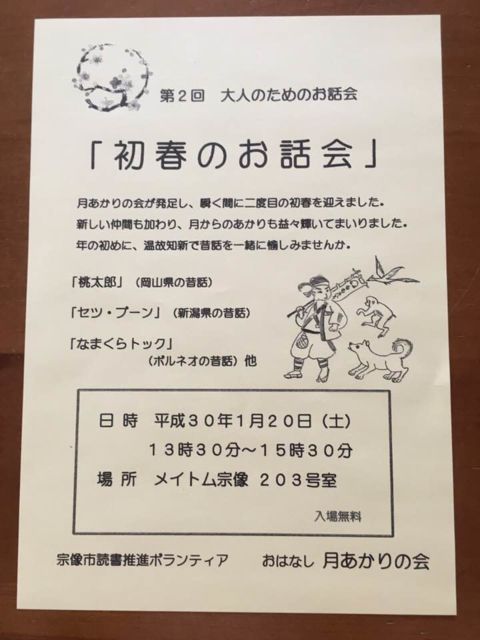 第2回 大人のためのお話会
「初春のお話会」
月あかりの会が発足し、瞬く間に二度目の初春を迎えました。
新しい仲間も加わり、月からのあかりも益々輝いてまいりました。
年の初めに、温故知新で昔話を一緒に愉しみませんか。
「桃太郎」（岡山県の昔話）
「セツ・ブーン」（新潟県の昔話）
「なまくらトック」
（ボルネオの昔話）他
日 時 平成30年1月20日（土）
13時30分～15時30分
場 所 メイトム宗像 203号室
入場無料
宗像市読書推進ボランティア おはなし 月あかりの会